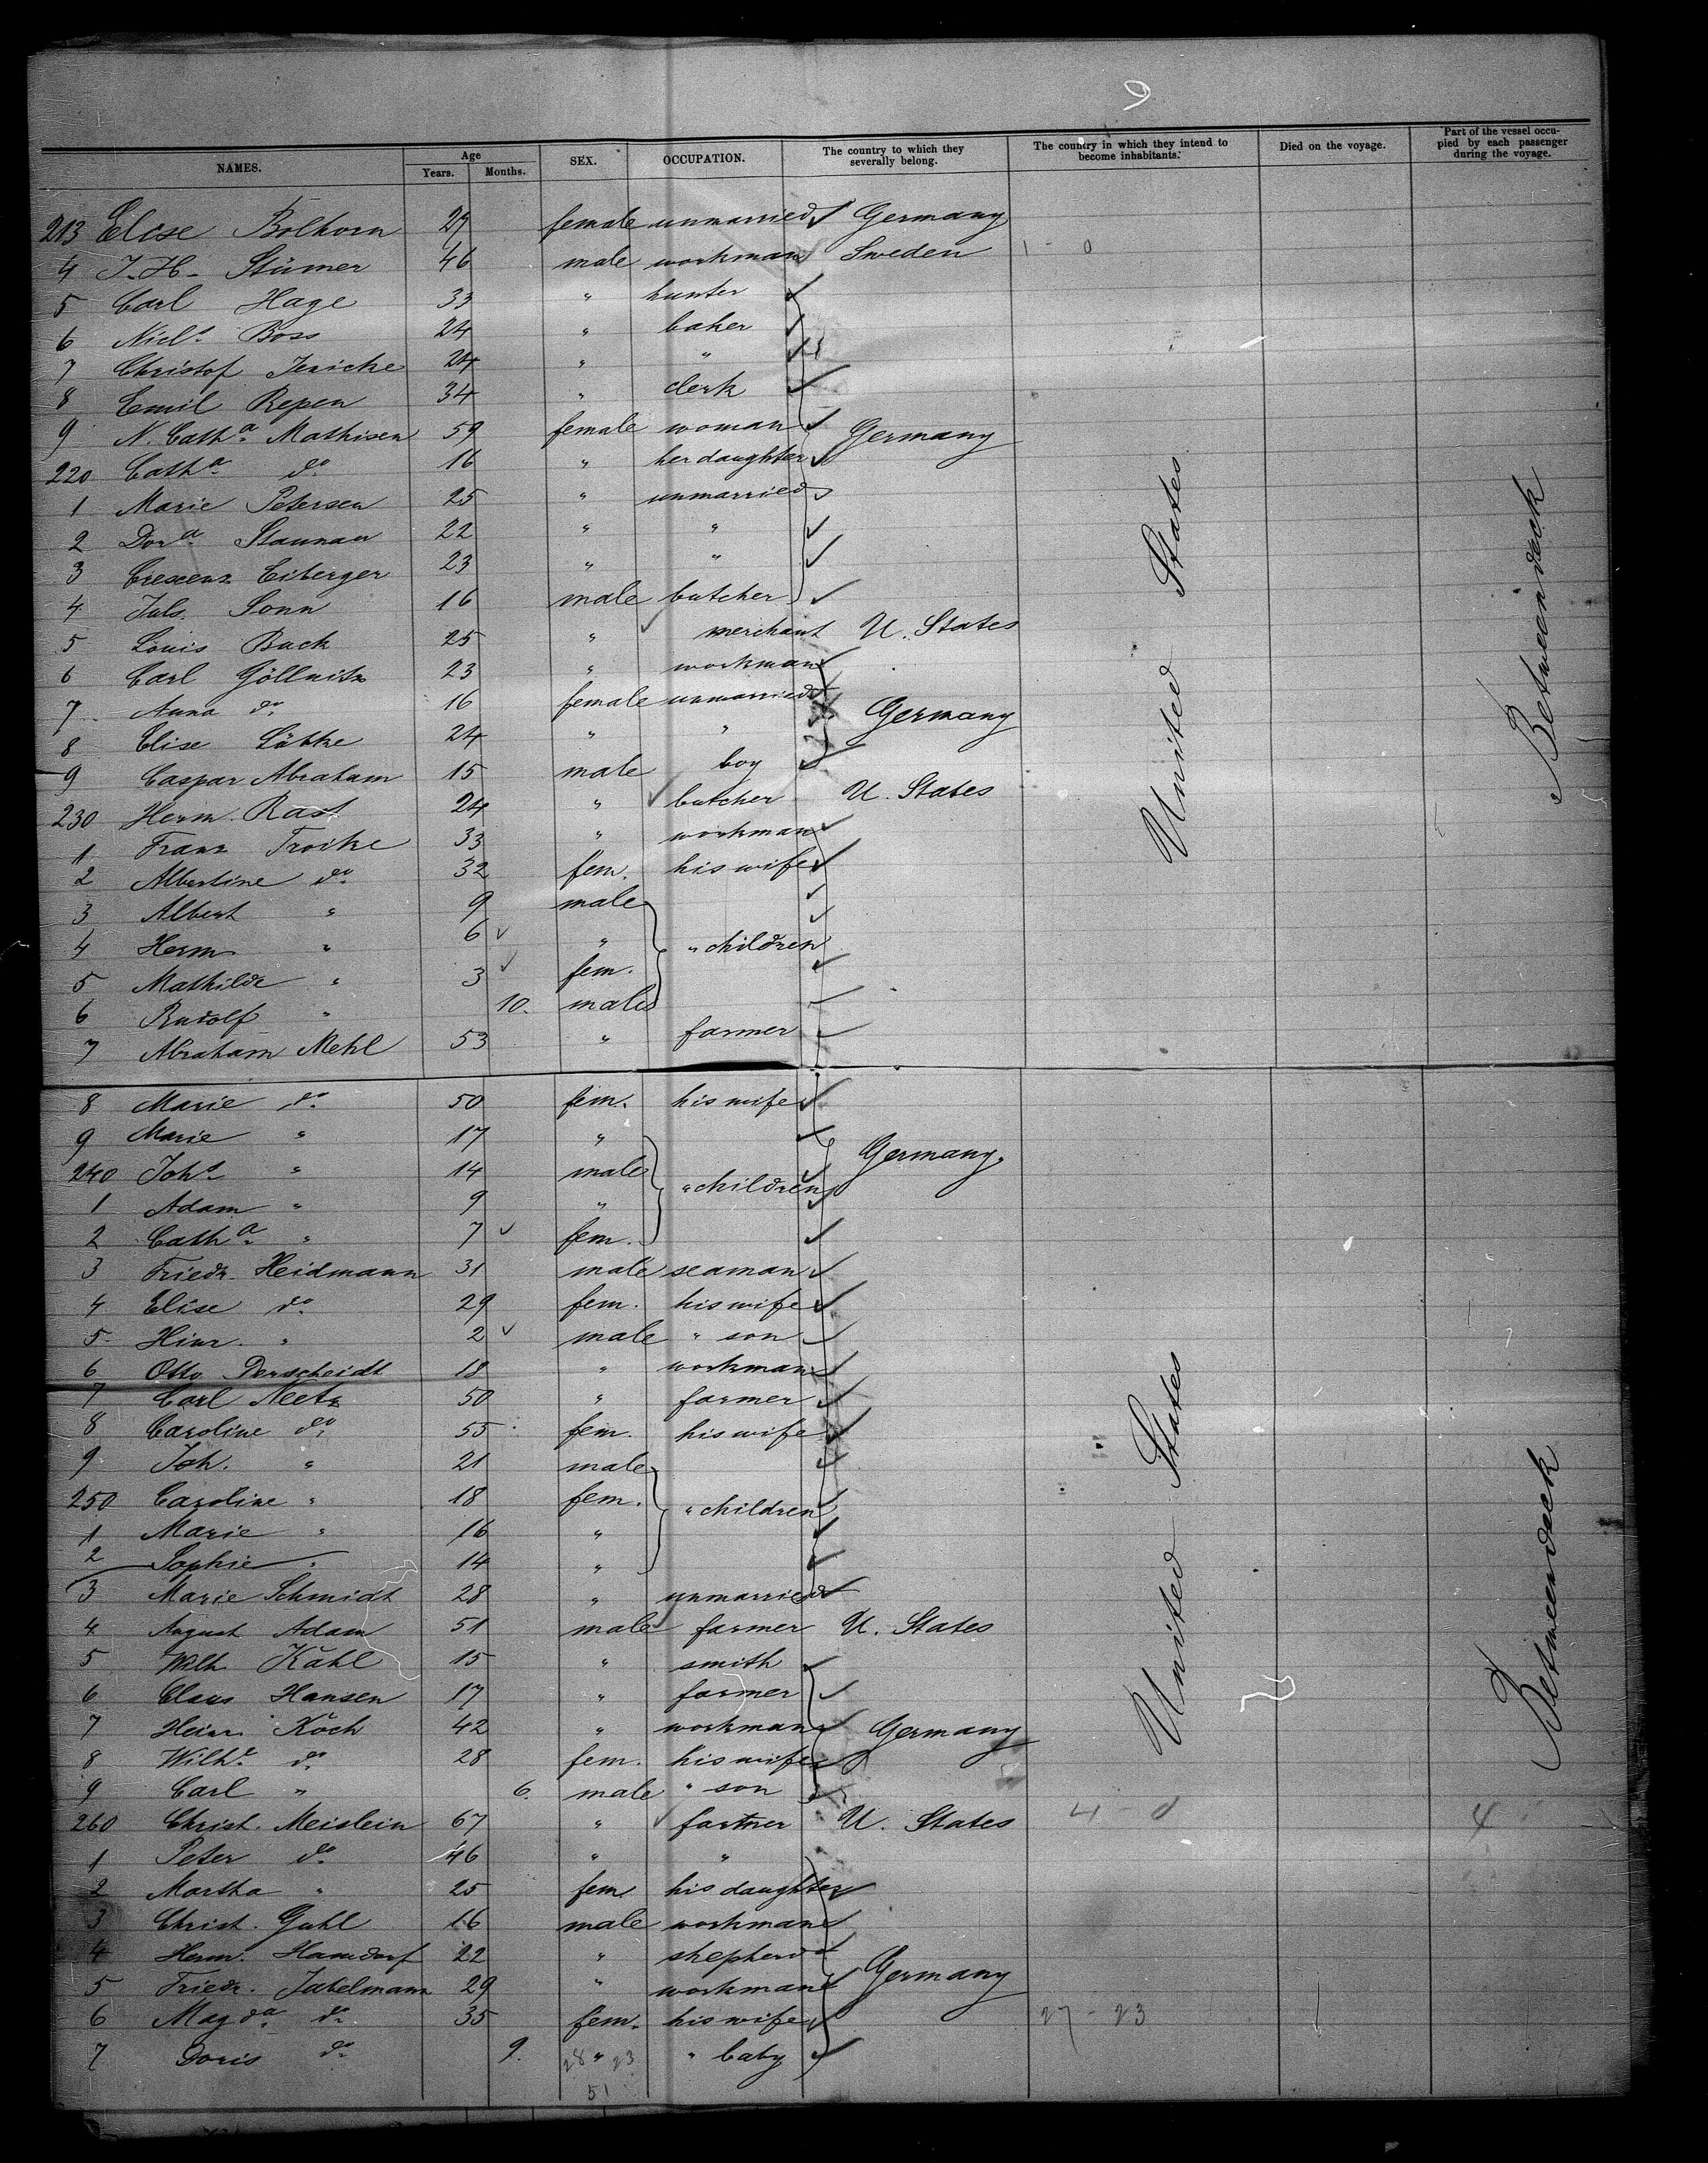 9
NAMES. Age Years. Months. SEX. OCCUPATION. The country to which they severally belong. The country in which they intend to become inhabitants. Died on the voyage. Part of the vessel occupied by each passenger during the voyage.
213 Elise Bolhorn 27 female unmarried Germany
4 J. H. Stürmer 46 male workman Sweden 1 - 0
5 Carl Hage 33 " hunter
6 Nicls Boss 24 " baker
7 Christof Jericke 24 " "
8 Emil Repen 34 " clerk
9 N. Catha Mathisen 59 female woman Germany
220 Catha do 16 " her daughter
1 Marie Petersen 25 " unmarried
2 Dora Staunau 22 " "
3 Crescenz Eiberger 23 " "
4 Juls. Sonn 16 male butcher
5 Louis Back 25 " merchant U. States
6 Carl Göllnitz 23 " workman
7 Anna do 16 female unmarried Germany
8 Elise Lübke 24 " "
9 Caspar Abraham 15 male boy
230 Herm. Rast 24 " butcher U. States
1 Franz Troike 33 " workman
2 Albertine do 32 fem. his wife
3 Albert " 9 male
4 Herm " 6 " " children
5 Mathilde " 3 fem.
6 Rudolf " 10. male
7 Abraham Mehl 53 " farmer
8 Marie do 50 fem. his wife
9 Marie " 17 " Germany
240 Johs " 14 male " children
1 Adam " 9 "
2 Catha " 7 fem.
3 Friedr. Heidmann 31 male seaman
4 Elise do 29 fem. his wife
5 Hinr. " 2 male " son
6 Otto Perscheidt 18 " workman
7 Carl Neetz 50 " farmer
8 Caroline do 55 fem. his wife
9 Joh. " 21 male
250 Caroline " 18 fem. " children
1 Marie " 16 "
2 Sophie " 14 "
3 Marie Schmidt 28 " unmarried
4 August Adam 51 male farmer U. States
5 Wilh Kähl 15 " smith
6 Claus Hansen 17 " farmer
7 Heinr. Koch 42 " workman Germany
8 Wilhe do 28 fem. his wife
9 Carl " 6. male " son
260 Christ. Meislein 67 " farmer U. States 4 - 0 4
1 Peter do 46 " "
2 Martha " 25 fem his daughter
3 Christ. Guhl 16 male workman
4 Herm. Hamdorf 22 " shepherd
5 Friedr. Jabelmann 29 " workman Germany
6 Magda do 35 fem. his wife 27 - 23
7 Doris do 9. " " baby
28 23
51
United States
Betweendeck
United States
Betweendeck